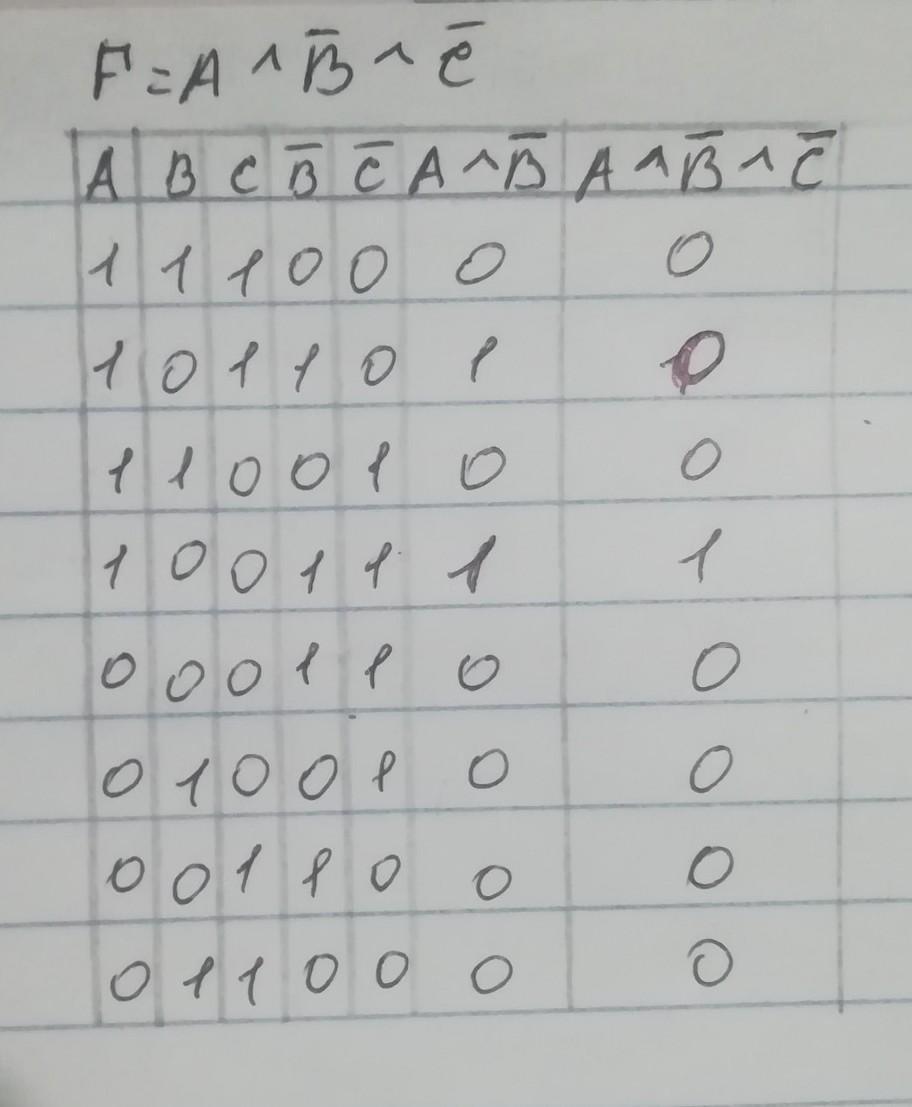 F = A ^ B̅ ^ C̅
A B C B̅ C̅ A ^ B̅ A ^ B̅ ^ C̅
1 1 1 0 0 0 0
1 0 1 1 0 1 0
1 1 0 0 1 0 0
1 0 0 1 1 1 1
0 0 0 1 1 0 0
0 1 0 0 1 0 0
0 0 1 1 0 0 0
0 1 1 0 0 0 0